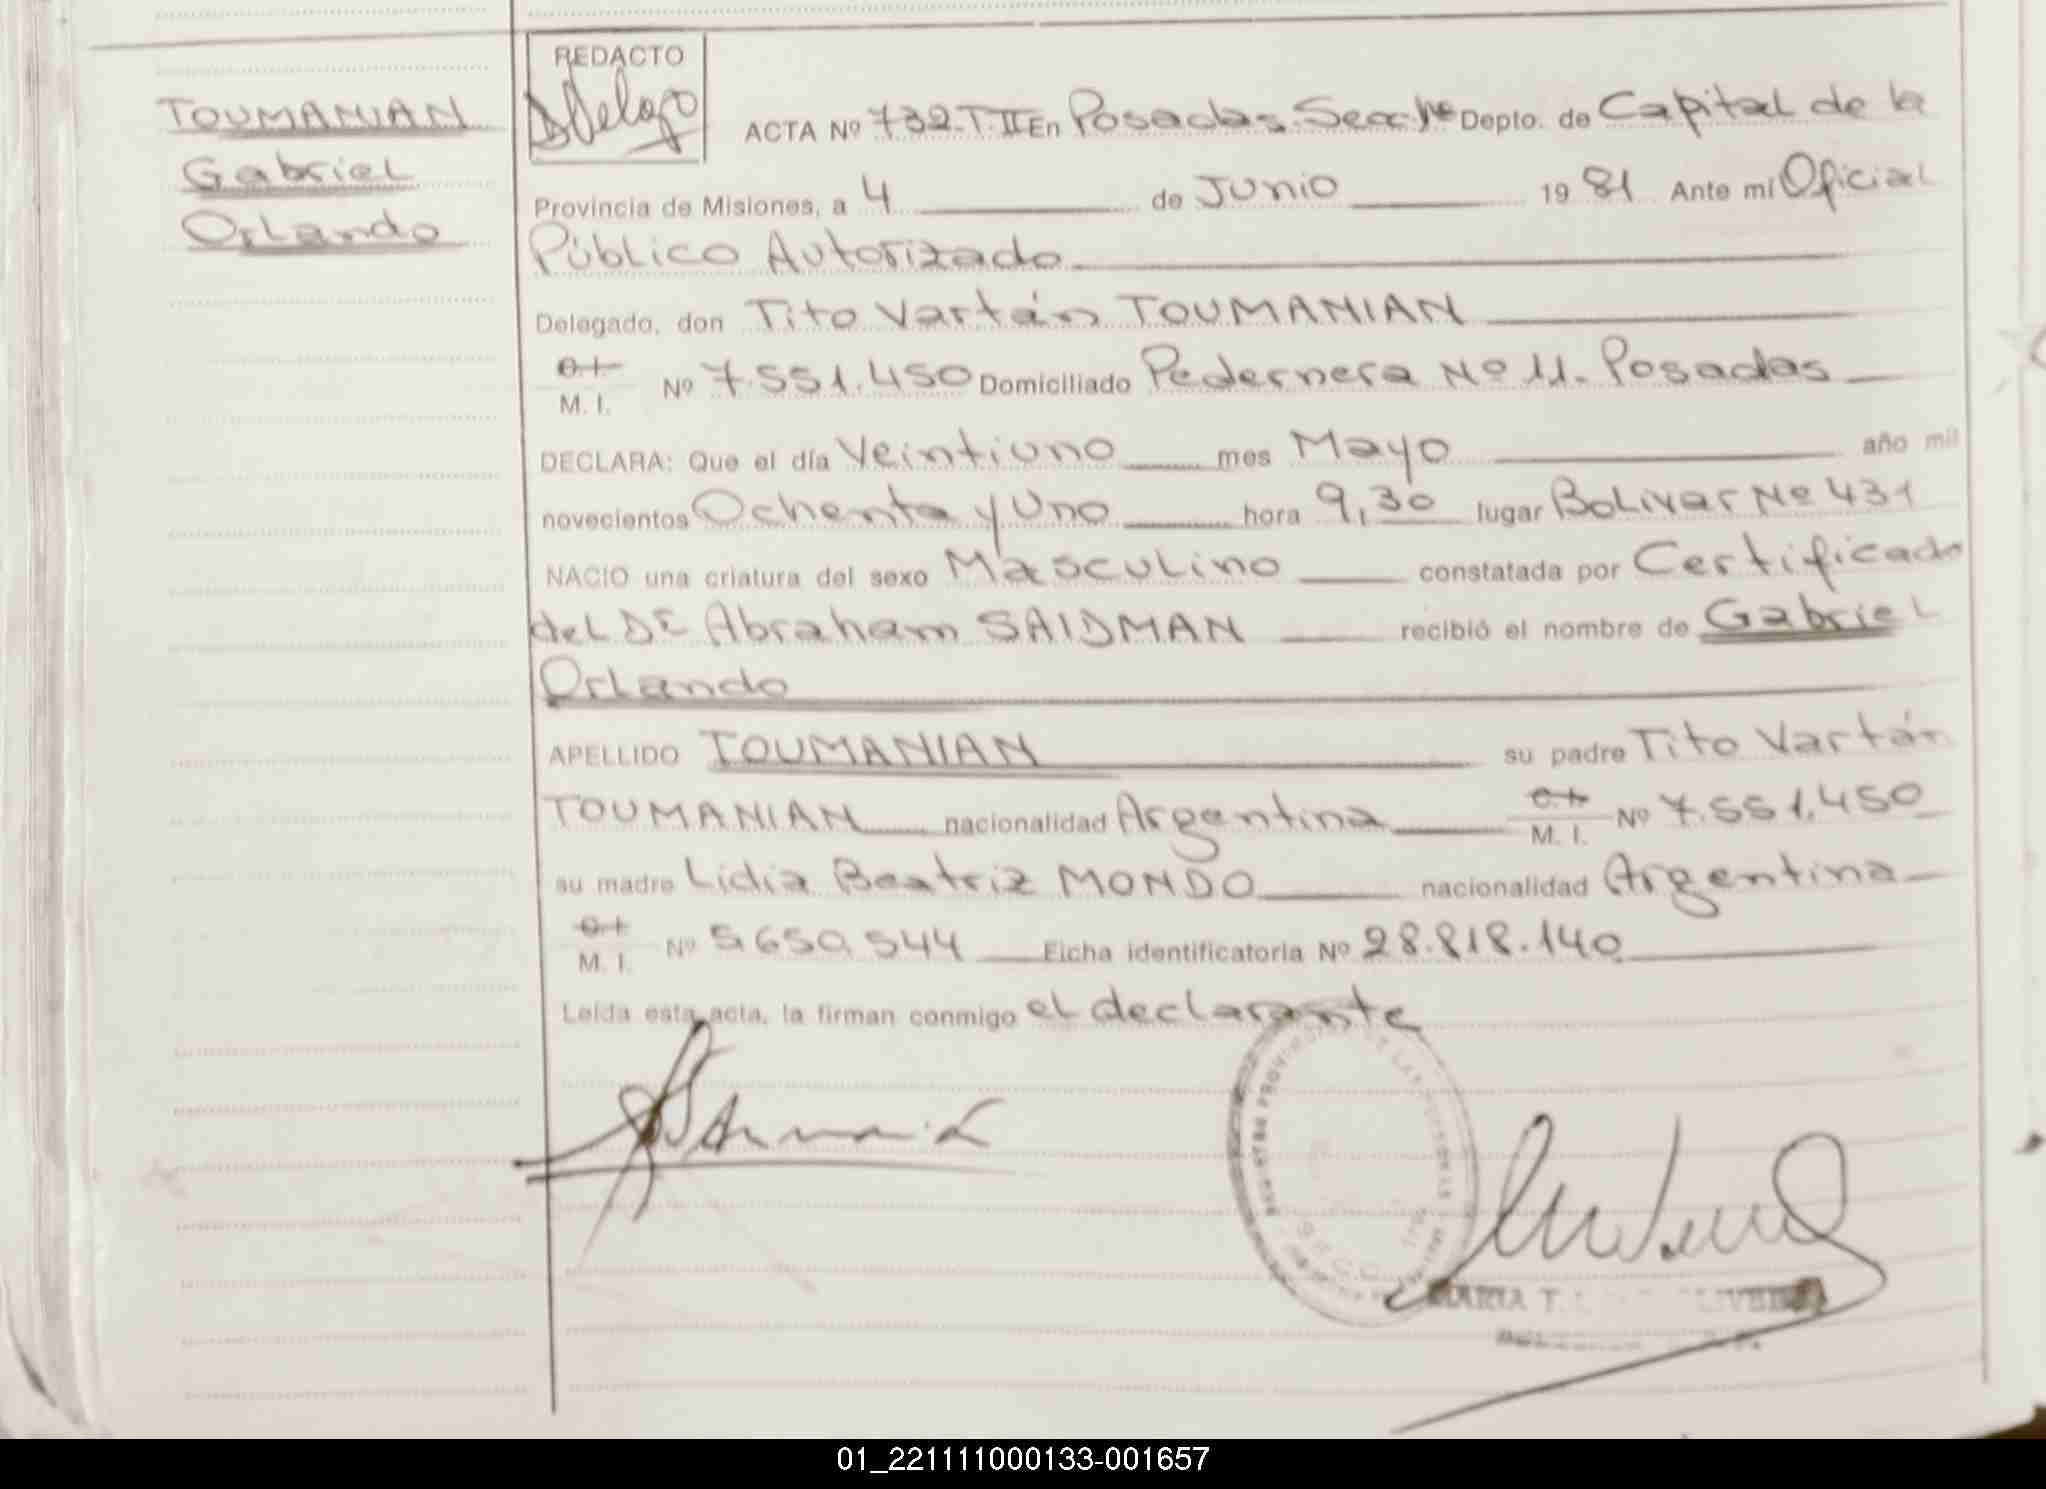 REDACTO
TOUMANIAN
Gabriel
Orlando
ACTA Nº 732.T.II En Posadas. Secc 1ra Depto. de Capital de la
Provincia de Misiones, a 4 de Junio 1981 Ante mí Oficial
Público Autorizado
Delegado, don Tito Vartán TOUMANIAN
C.I.
M. I. Nº 7.551.450 Domiciliado Pedernera Nº 11. Posadas
DECLARA: Que el día Veintiuno mes Mayo año mil
novecientos Ochenta y Uno hora 9,30 lugar Bolivar Nº 431
NACIO una criatura del sexo Masculino constatada por Certificado
del Dr Abraham SAIDMAN recibió el nombre de Gabriel
Orlando
APELLIDO TOUMANIAN su padre Tito Vartán
TOUMANIAN nacionalidad Argentina C.I. M. I. Nº 7.551.450
su madre Lidia Beatriz MONDO nacionalidad Argentina
C.I.
M. I. Nº 5.650.544 Ficha identificatoria Nº 28.818.140
Leída esta acta, la firman conmigo el declarante
REGISTRO PROVINCIAL DE LAS PERSONAS
MARIA T.
01_221111000133-001657